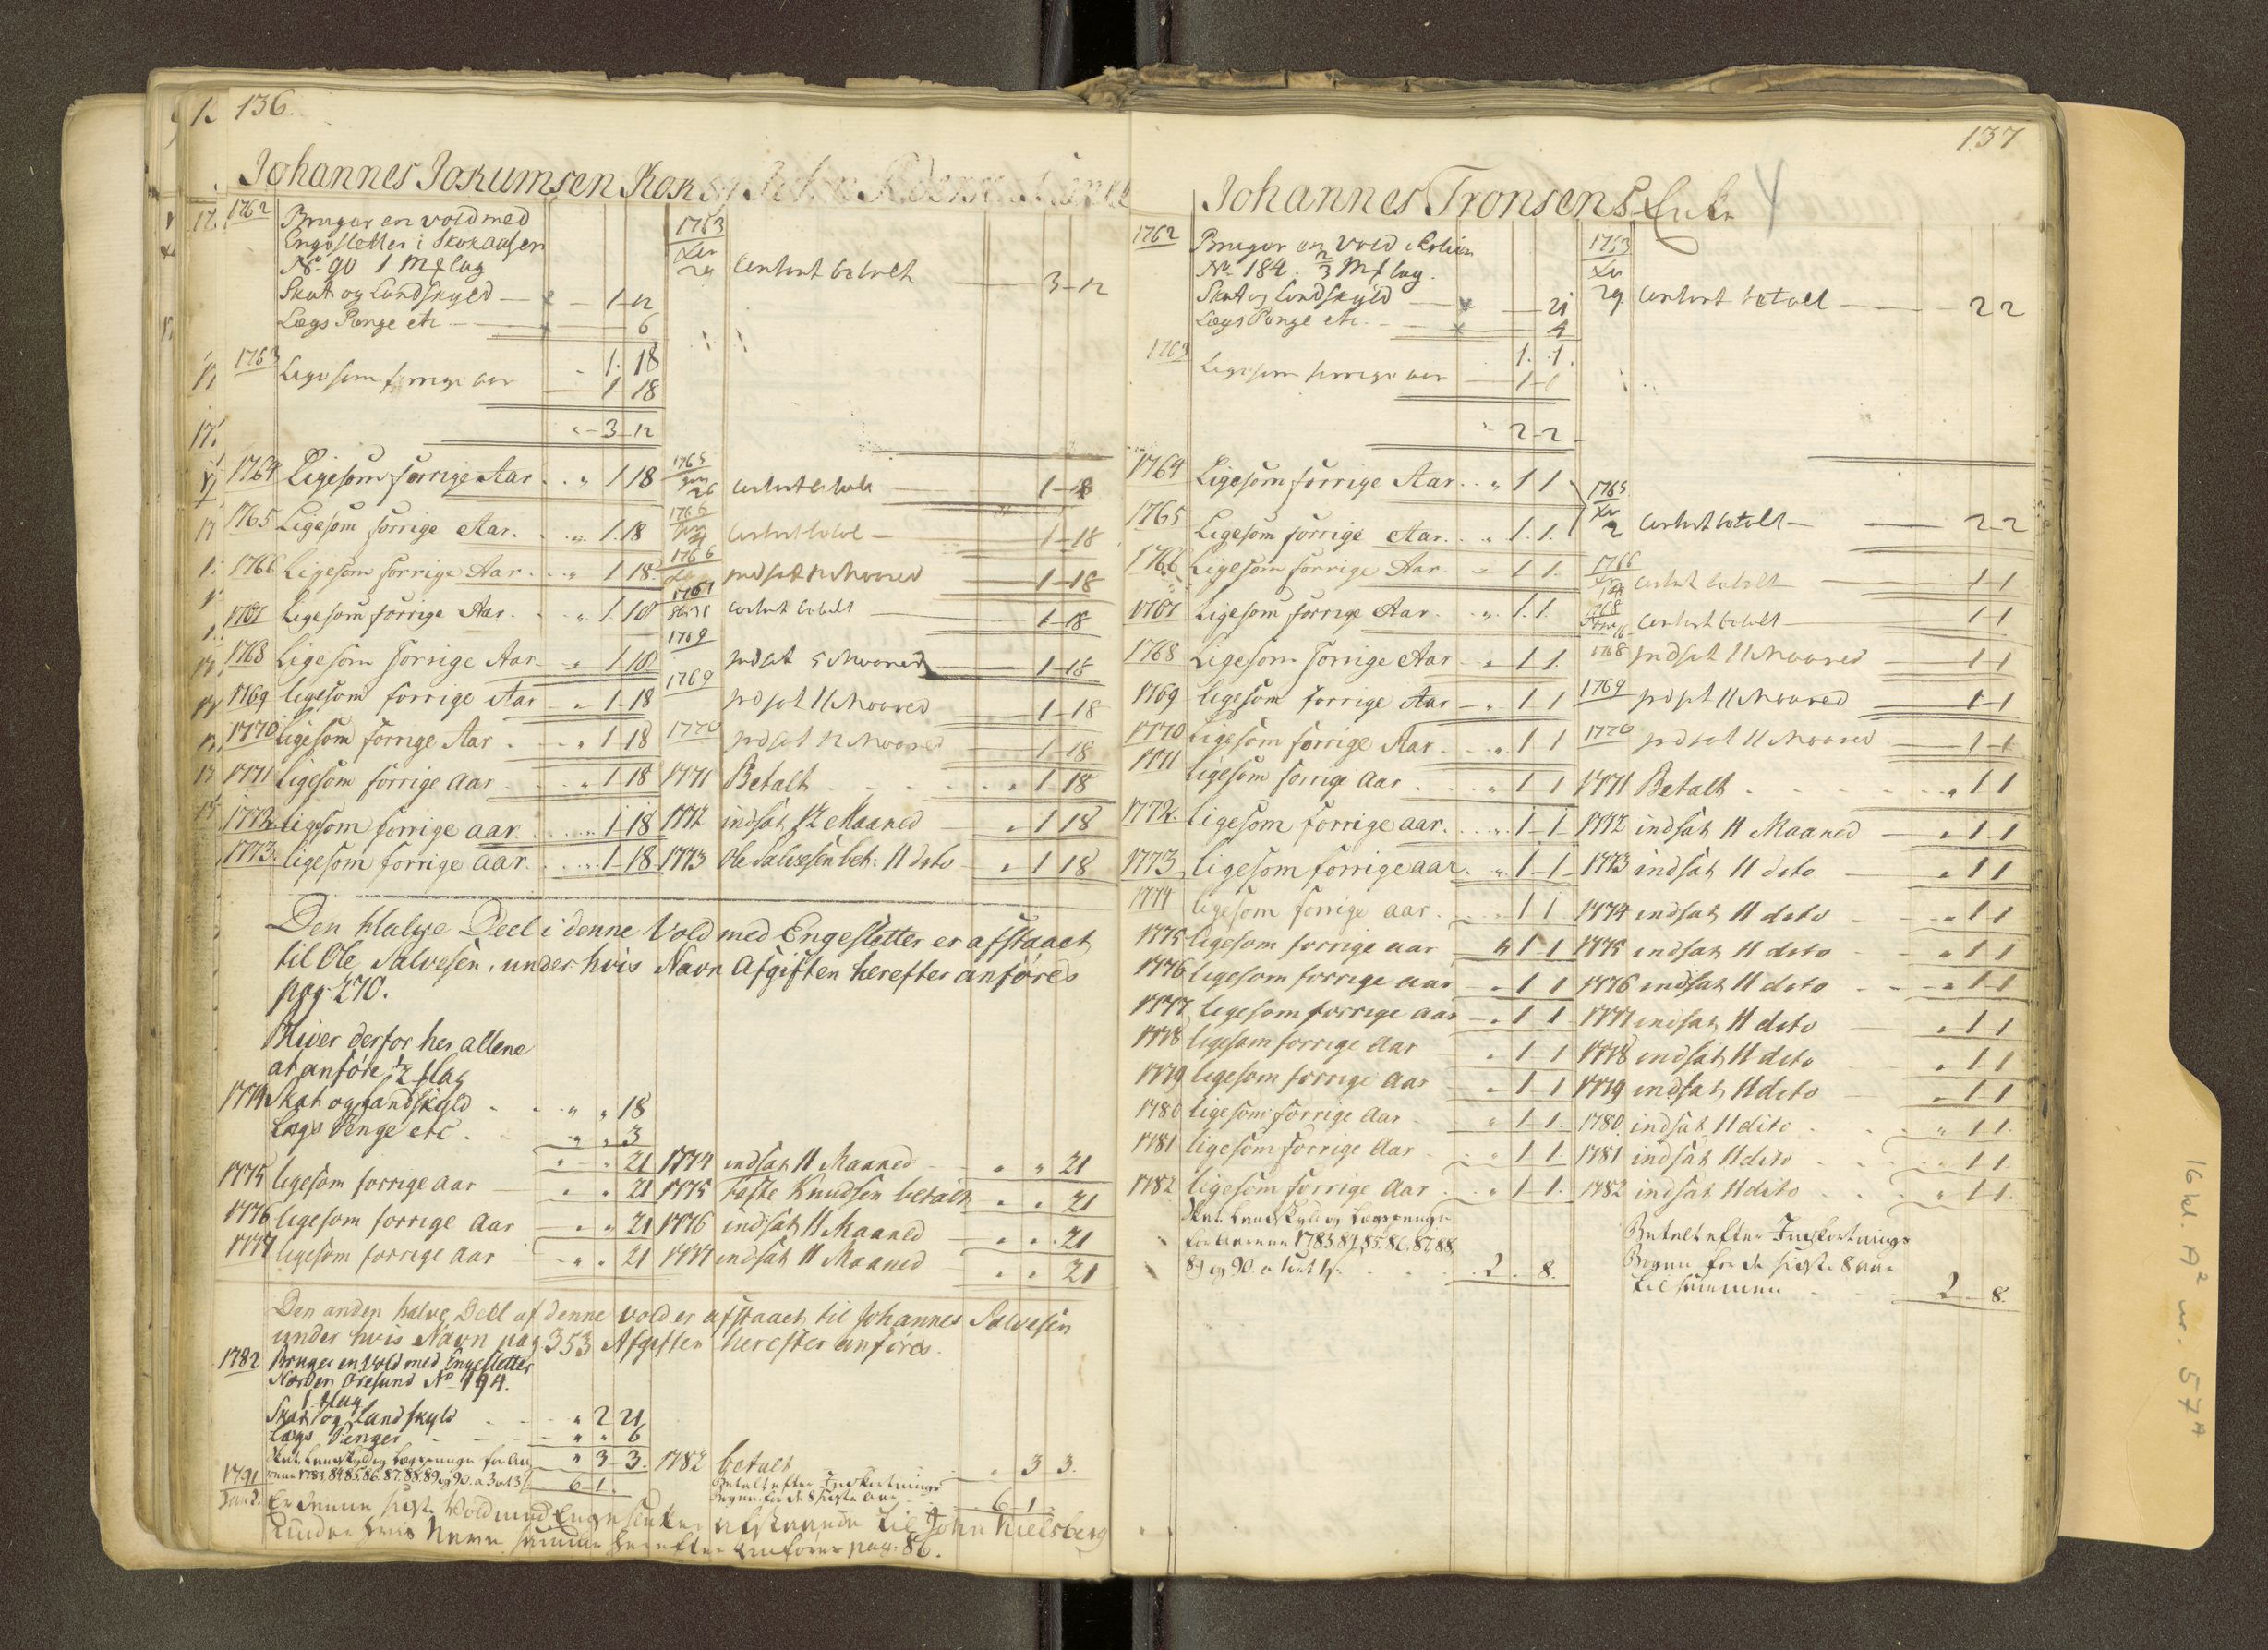 136.
Johannes Jokumsen Kok
1762 Bruger en vold med
Engesletter i Skokaasen
No 90 1 Mflag
Skat og Landskyld — 1 - 12
Lægs Penge etc — 6
1 . 18
1763 Lige som forrige aar 1 - 18
3 - 12
1763 Xbr 29 Contant betalt — 3 - 12
1764 Ligesom forrige Aar . . „ 1 18
1765 26 Contant betalt — 1 - 18
1765 Ligesom forrige Aar . . „ 1 . 18
1766 Contant betalt — 1 - 18
1766 Ligesom forrige Aar . . „ 1 18
1766 indsat 12 Maaned — 1 - 18
1767 Ligesom forrige Aar . . „ 1 18
1767 Contant betalt — 1 - 18
1768 Ligesom forrige Aar „ 1 18
1769 indsat 5 Maaned — 1 - 18
1769 ligesom forrige Aar - „ 1 - 18
1769 indsat 11 Maaned — 1 - 18
1770 ligesom forrige Aar . - „ 1 18
1770 indsat 12 Maaned — 1 - 18
1771 ligesom forrige aar . . „ 1 18
1771 Betalt . . . „ 1 - 18
1772 ligesom forrige aar . . . „ 1 - 18
1772 indsat 12 Maaned — „ 1 18
1773 ligesom forrige aar . . . „ 1 - 18
1773 Ole Salvesen bet: 11 dito - „ 1 18
Den Halve Deel i denne Vold med Engesletter er afstaaet
til Ole Salvesen, under hvis Navn Afgiften herefter anføres
pag. 270.
Bliver derfor her allene
at anføre 1/2 flag
1774 Skat og Landskyld . . „ „ 18
Lægs Penge etc . „ „ 3
„ „ 21
1774 indsat 11 Maaned — „ „ 21
1775 ligesom forrige aar „ „ 21
1775 Taste Knudsen betalt „ „ 21
1776 ligesom forrige aar — „ „ 21
1776 indsat 11 Maaned — „ „ 21
1777 ligesom forrige aar — „ „ 21
1777 indsat 11 Maaned „ „ 21
Den anden halve Deel af denne vold er afstaaet til Johannes Salvesen
under hvis Navn pag 353 Afgiften herefter anføres.
1782 Bruger en Vold med Engesletter
Norden Øresund No 194.
1 flag
Skat og Landskyld . . „ 2 21
Lægs Penger — „ „ 6
„ 3 - 3.
1782 betalt „ 3 3.
Skat Landskyld og Lægspenge for Aa-
rene 1783, 84, 85, 86, 87, 88, 89 og 90. a 3 ort 3 s 6 - 1 .
Betalt efter Indkortnings
Bogen for de 8 sidste Aar — 6 - 1
1791 Er denne sidste Vold med Engesletter afstaaende til John Nielsberg
under hvis Navn samme herefter anføres pag. 86.
137
Johannes Tronsens Enke
1762 Bruger en vold
No 184. 2/3 Mflag.
Skat og Landskyld — 21
Lægs Penge etc. — 4
1 . 1 .
1763 Lige som forrige aar — 1 - 1
2 - 2
1763 Xbr 29 Contant betalt — 2 2
1764 Ligesom forrige Aar . . „ 1 1
1765 Ligesom forrige Aar . . „ 1 . 1 .
1765 Xbr 2 Contant betalt — 2 - 2
1766 Ligesom forrige Aar . - 1 1 .
1766 Contant betalt — 1 - 1
1767 Ligesom forrige Aar . . „ 1 . 1 .
1768 Contant betalt — 1 1
1768 Ligesom forrige Aar - „ 1 1 .
1768 indsat 11 Maaned — 1 - 1
1769 ligesom forrige Aar - „ 1 1
1769 indsat 11 Maaned — 1 - 1
1770 ligesom forrige Aar . . „ 1 1
1770 indsat 11 Maaned — 1 - 1
1771 ligesom forrige aar . . „ 1 1
1771 Betalt . . . . „ 1 1
1772 ligesom forrige aar . . . „ 1 - 1
1772 indsat 11 Maaned — „ 1 - 1
1773 ligesom forrige aar . „ 1 - 1
1773 indsat 11 dito — „ 1 1
1774 ligesom forrige aar . 1 1
1774 indsat 11 dito - „ 1 1
1775 ligesom forrige aar „ 1 1
1775 indsat 11 dito - „ 1 1
1776 ligesom forrige aar - „ 1 1
1776 indsat 11 dito - „ 1 - 1
1777 ligesom forrige aar - „ 1 1
1777 indsat 11 dito „ 1 1
1778 ligesom forrige aar „ 1 - 1
1778 indsat 11 dito „ 1 1
1779 ligesom forrige aar „ 1 - 1
1779 indsat 11 dito — „ 1 - 1
1780 ligesom forrige aar - „ 1 - 1 .
1780. indsat 11 dito . . „ 1 1 .
1781 ligesom forrige Aar . . „ 1 1 .
1781 indsat 11 dito . „ 1 1 .
1782 ligesom forrige Aar . . „ 1 - 1 .
1782 indsat 11 dito . . „ 1 1 .
Skat Landskyld og Lægspenge
for Aarene 1783, 84, 85, 86, 87, 88,
89 og 90. a 1 ort 1 s. . . 2 . 8 .
Betalt efter Indkortnings
Bogen for de sidste 8 aar
tilsammen . 2 - 8 .
16 kl. A2 nr. 57A